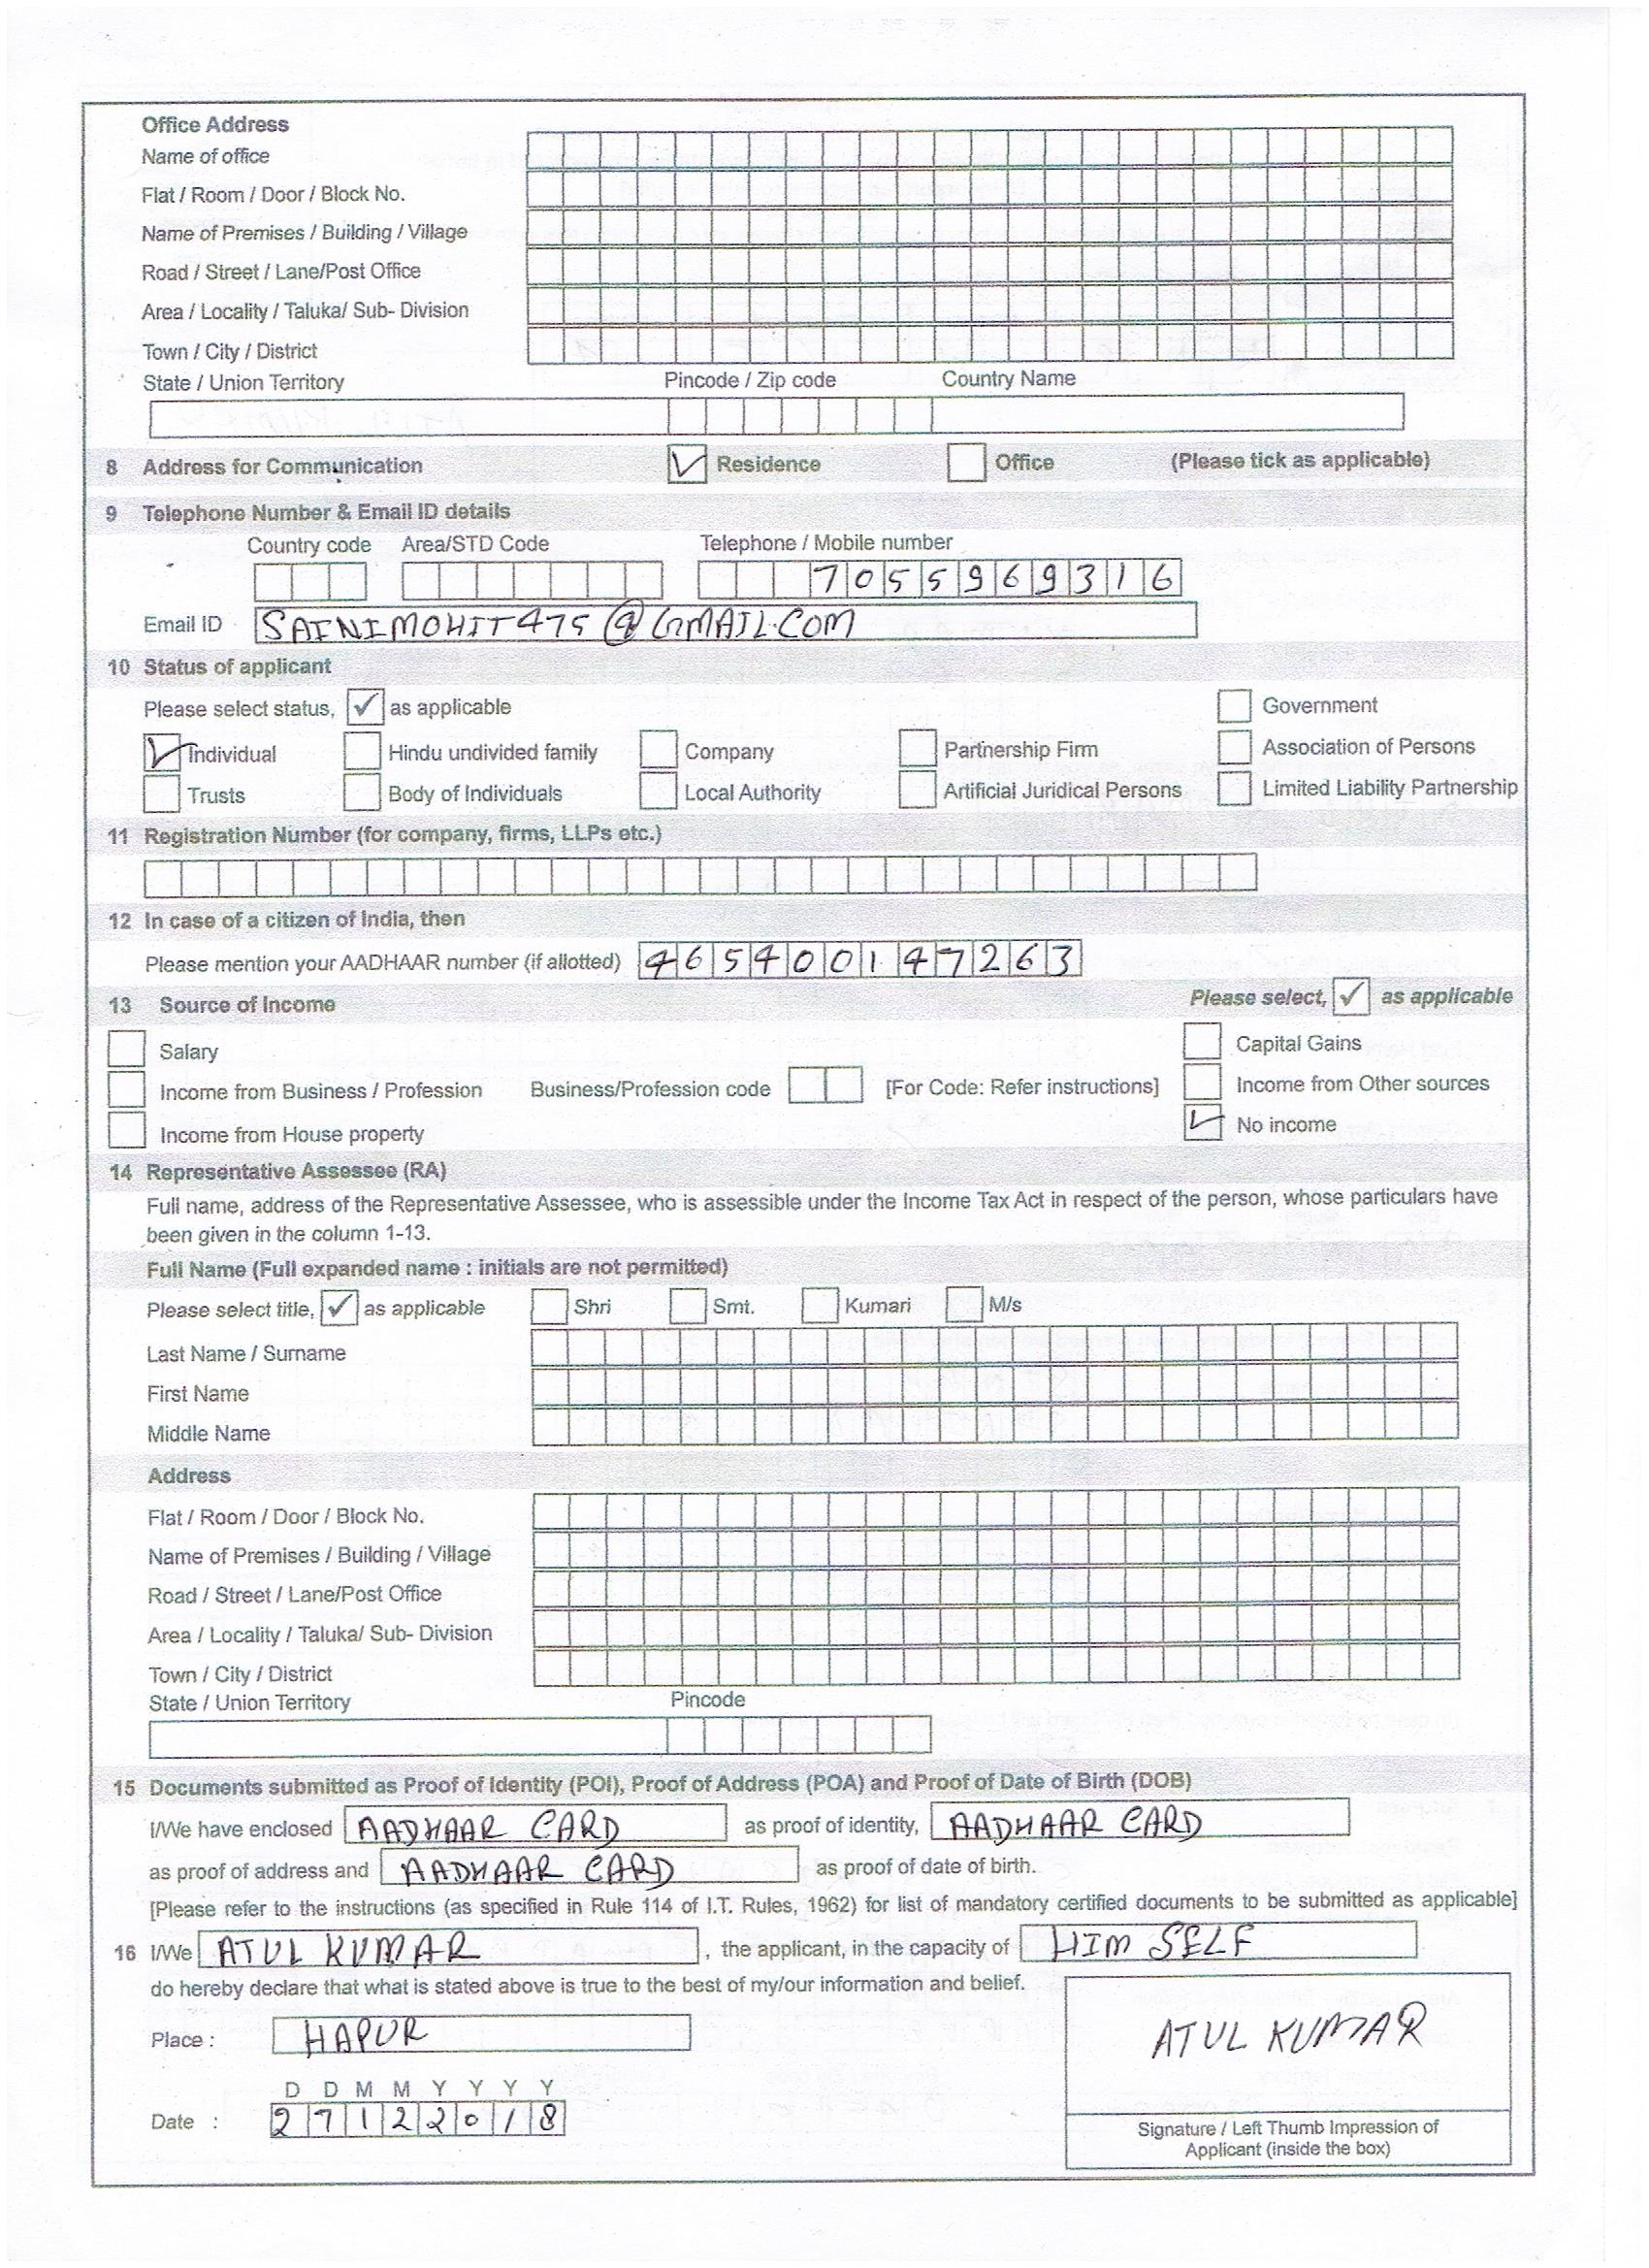 Office Address
Name of office
Flat / Room / Door / Block No.
Name of Premises / Building / Village
Road / Street / Lane/Post Office
Area / Locality / Taluka/ Sub- Division
Town / City / District
State / Union Territory Pincode / Zip code Country Name
8 Address for Communication Residence Office (Please tick as applicable)
9 Telephone Number & Email ID details
Country code Area/STD Code Telephone / Mobile number
7055969316
Email ID SAINIMOHIT475@GMAIL.COM
10 Status of applicant
Please select status, ✓ as applicable Government
Individual Hindu undivided family Company Partnership Firm Association of Persons
Trusts Body of Individuals Local Authority Artificial Juridical Persons Limited Liability Partnership
11 Registration Number (for company, firms, LLPs etc.)
12 In case of a citizen of India, then
Please mention your AADHAAR number (if allotted) 465400147263
13 Source of Income Please select, ✓ as applicable
Salary Capital Gains
Income from Business / Profession Business/Profession code [For Code: Refer instructions] Income from Other sources
Income from House property No income
14 Representative Assessee (RA)
Full name, address of the Representative Assessee, who is assessible under the Income Tax Act in respect of the person, whose particulars have
been given in the column 1-13.
Full Name (Full expanded name : initials are not permitted)
Please select title, ✓ as applicable Shri Smt. Kumari M/s
Last Name / Surname
First Name
Middle Name
Address
Flat / Room / Door / Block No.
Name of Premises / Building / Village
Road / Street / Lane/Post Office
Area / Locality / Taluka/ Sub- Division
Town / City / District
State / Union Territory Pincode
15 Documents submitted as Proof of Identity (POI), Proof of Address (POA) and Proof of Date of Birth (DOB)
I/We have enclosed AADHAAR CARD as proof of identity, AADHAAR CARD
as proof of address and AADHAAR CARD as proof of date of birth.
[Please refer to the instructions (as specified in Rule 114 of I.T. Rules, 1962) for list of mandatory certified documents to be submitted as applicable]
16 I/We ATUL KUMAR , the applicant, in the capacity of HIM SELF
do hereby declare that what is stated above is true to the best of my/our information and belief.
Place : HAPUR
ATUL KUMAR
D D M M Y Y Y Y
Date : 27122018
Signature / Left Thumb Impression of
Applicant (inside the box)